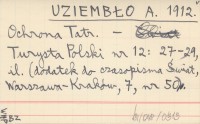 UZIEMBŁO A. 1912.
Ochrona Tatr. -
Turysta Polski nr 12: 27-29,
il. (dodatek do czasopisma Świat,
Warszawa-Kraków, 7, nr 50).
BZ